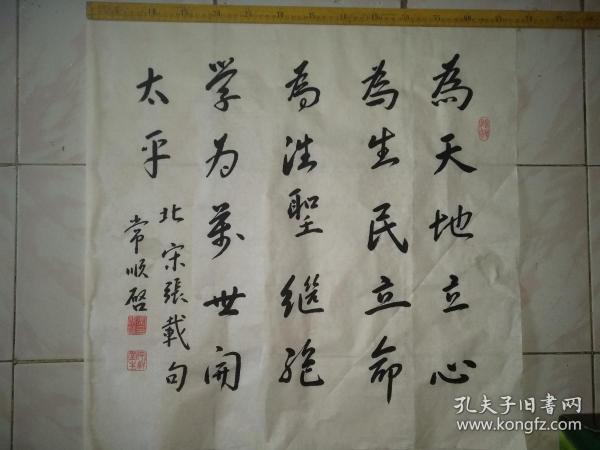 為天地立心
為生民立命
為往聖繼絕
学为萬世開
太平
北宋張載句
常順啓
孔夫子旧書网
www.kongfz.com